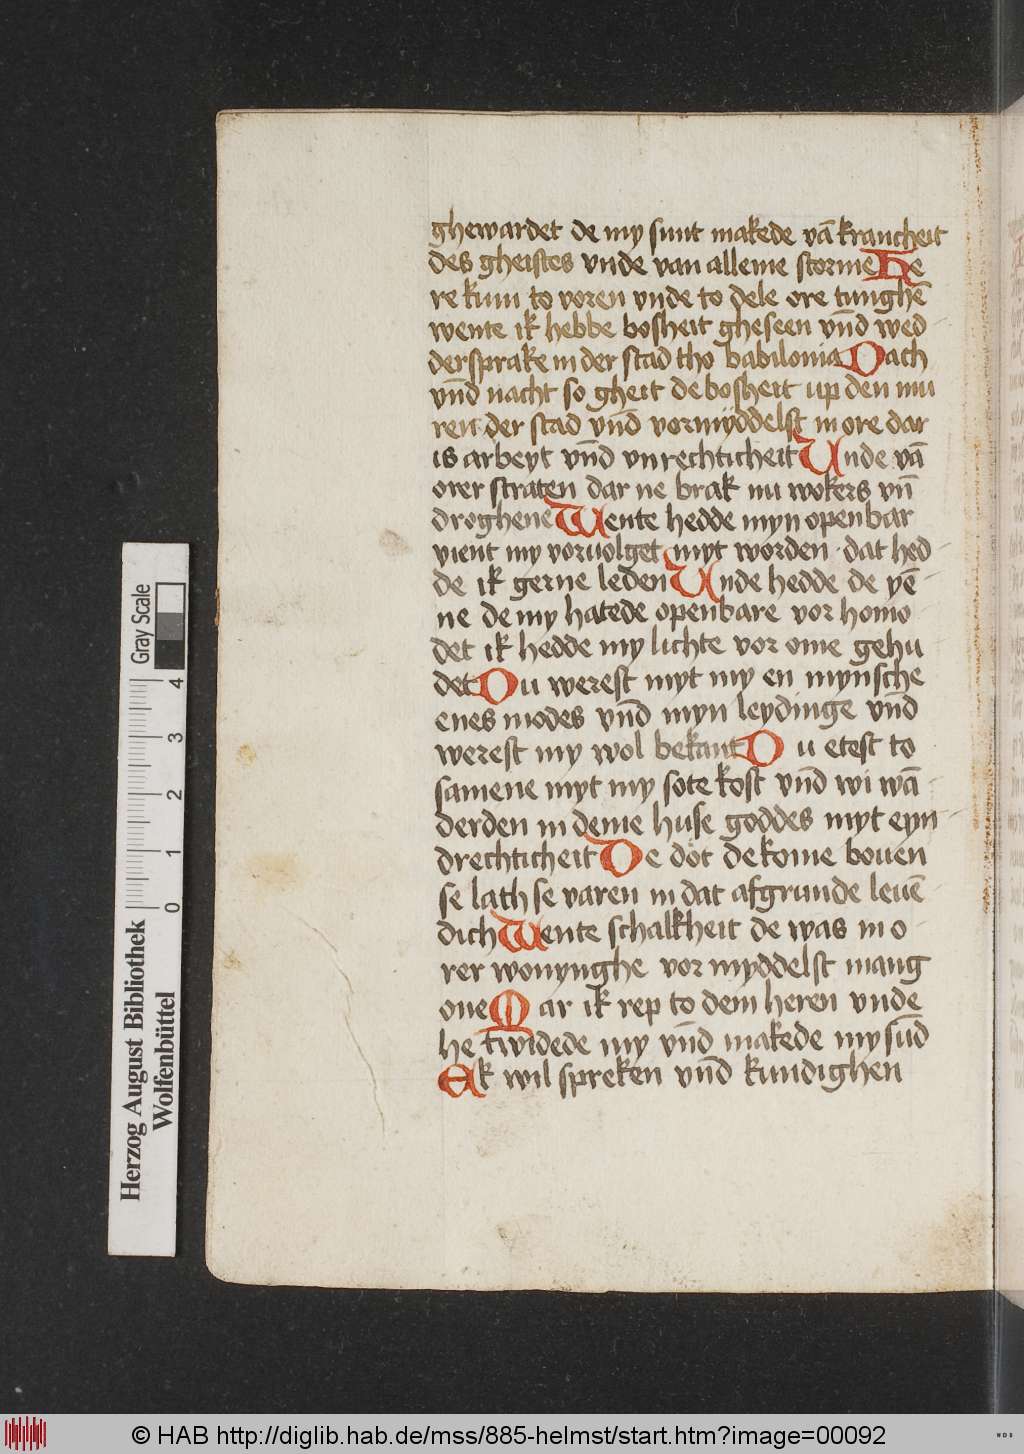 ghewardet de my sunt makede vā krancheit
des gheistes vnde van alleme storme He
re kum to voren vnde to dele ore tunghē
wente ik hebbe bosheit gheseen vn̄d wed
dersprake in der stad tho babilonia Dach
vn̄d nacht so gheit de bosheit up den mu
ren der stad vn̄d vormyddelst in ore dar
is arbeyt vn̄d vnrechticheit Vnde vā
orer straten dar ne brak nu wokers vn̄
droghene Wente hedde myn openbar
vient my voruolget myt worden dat hed
de ik gerne leden Vnde hedde de yē
ne de my hatede openbare vor homo
det ik hedde my lichte vor ome gehu
det Du werest myt my en mynsche
enes modes vn̄d myn leydinge vn̄d
werest my wol bekant Du etest to
samene myt my sote kost vn̄d wi wā
derden in deme huse goddes myt eyn
drechticheit De dot de kome bouen
se lath se varen in dat afgrunde leuē
dich Wente schalkheit de was in o
rer wonynghe vor myddelst mang
one Mar ik rep to dem heren vnde
he twidede my vn̄d makede my sūd
Ek wil spreken vn̄d kundighen
Gray Scale
4
3
2
1
0
Herzog August Bibliothek
Wolfenbüttel
© HAB http://diglib.hab.de/mss/885-helmst/start.htm?image=00092